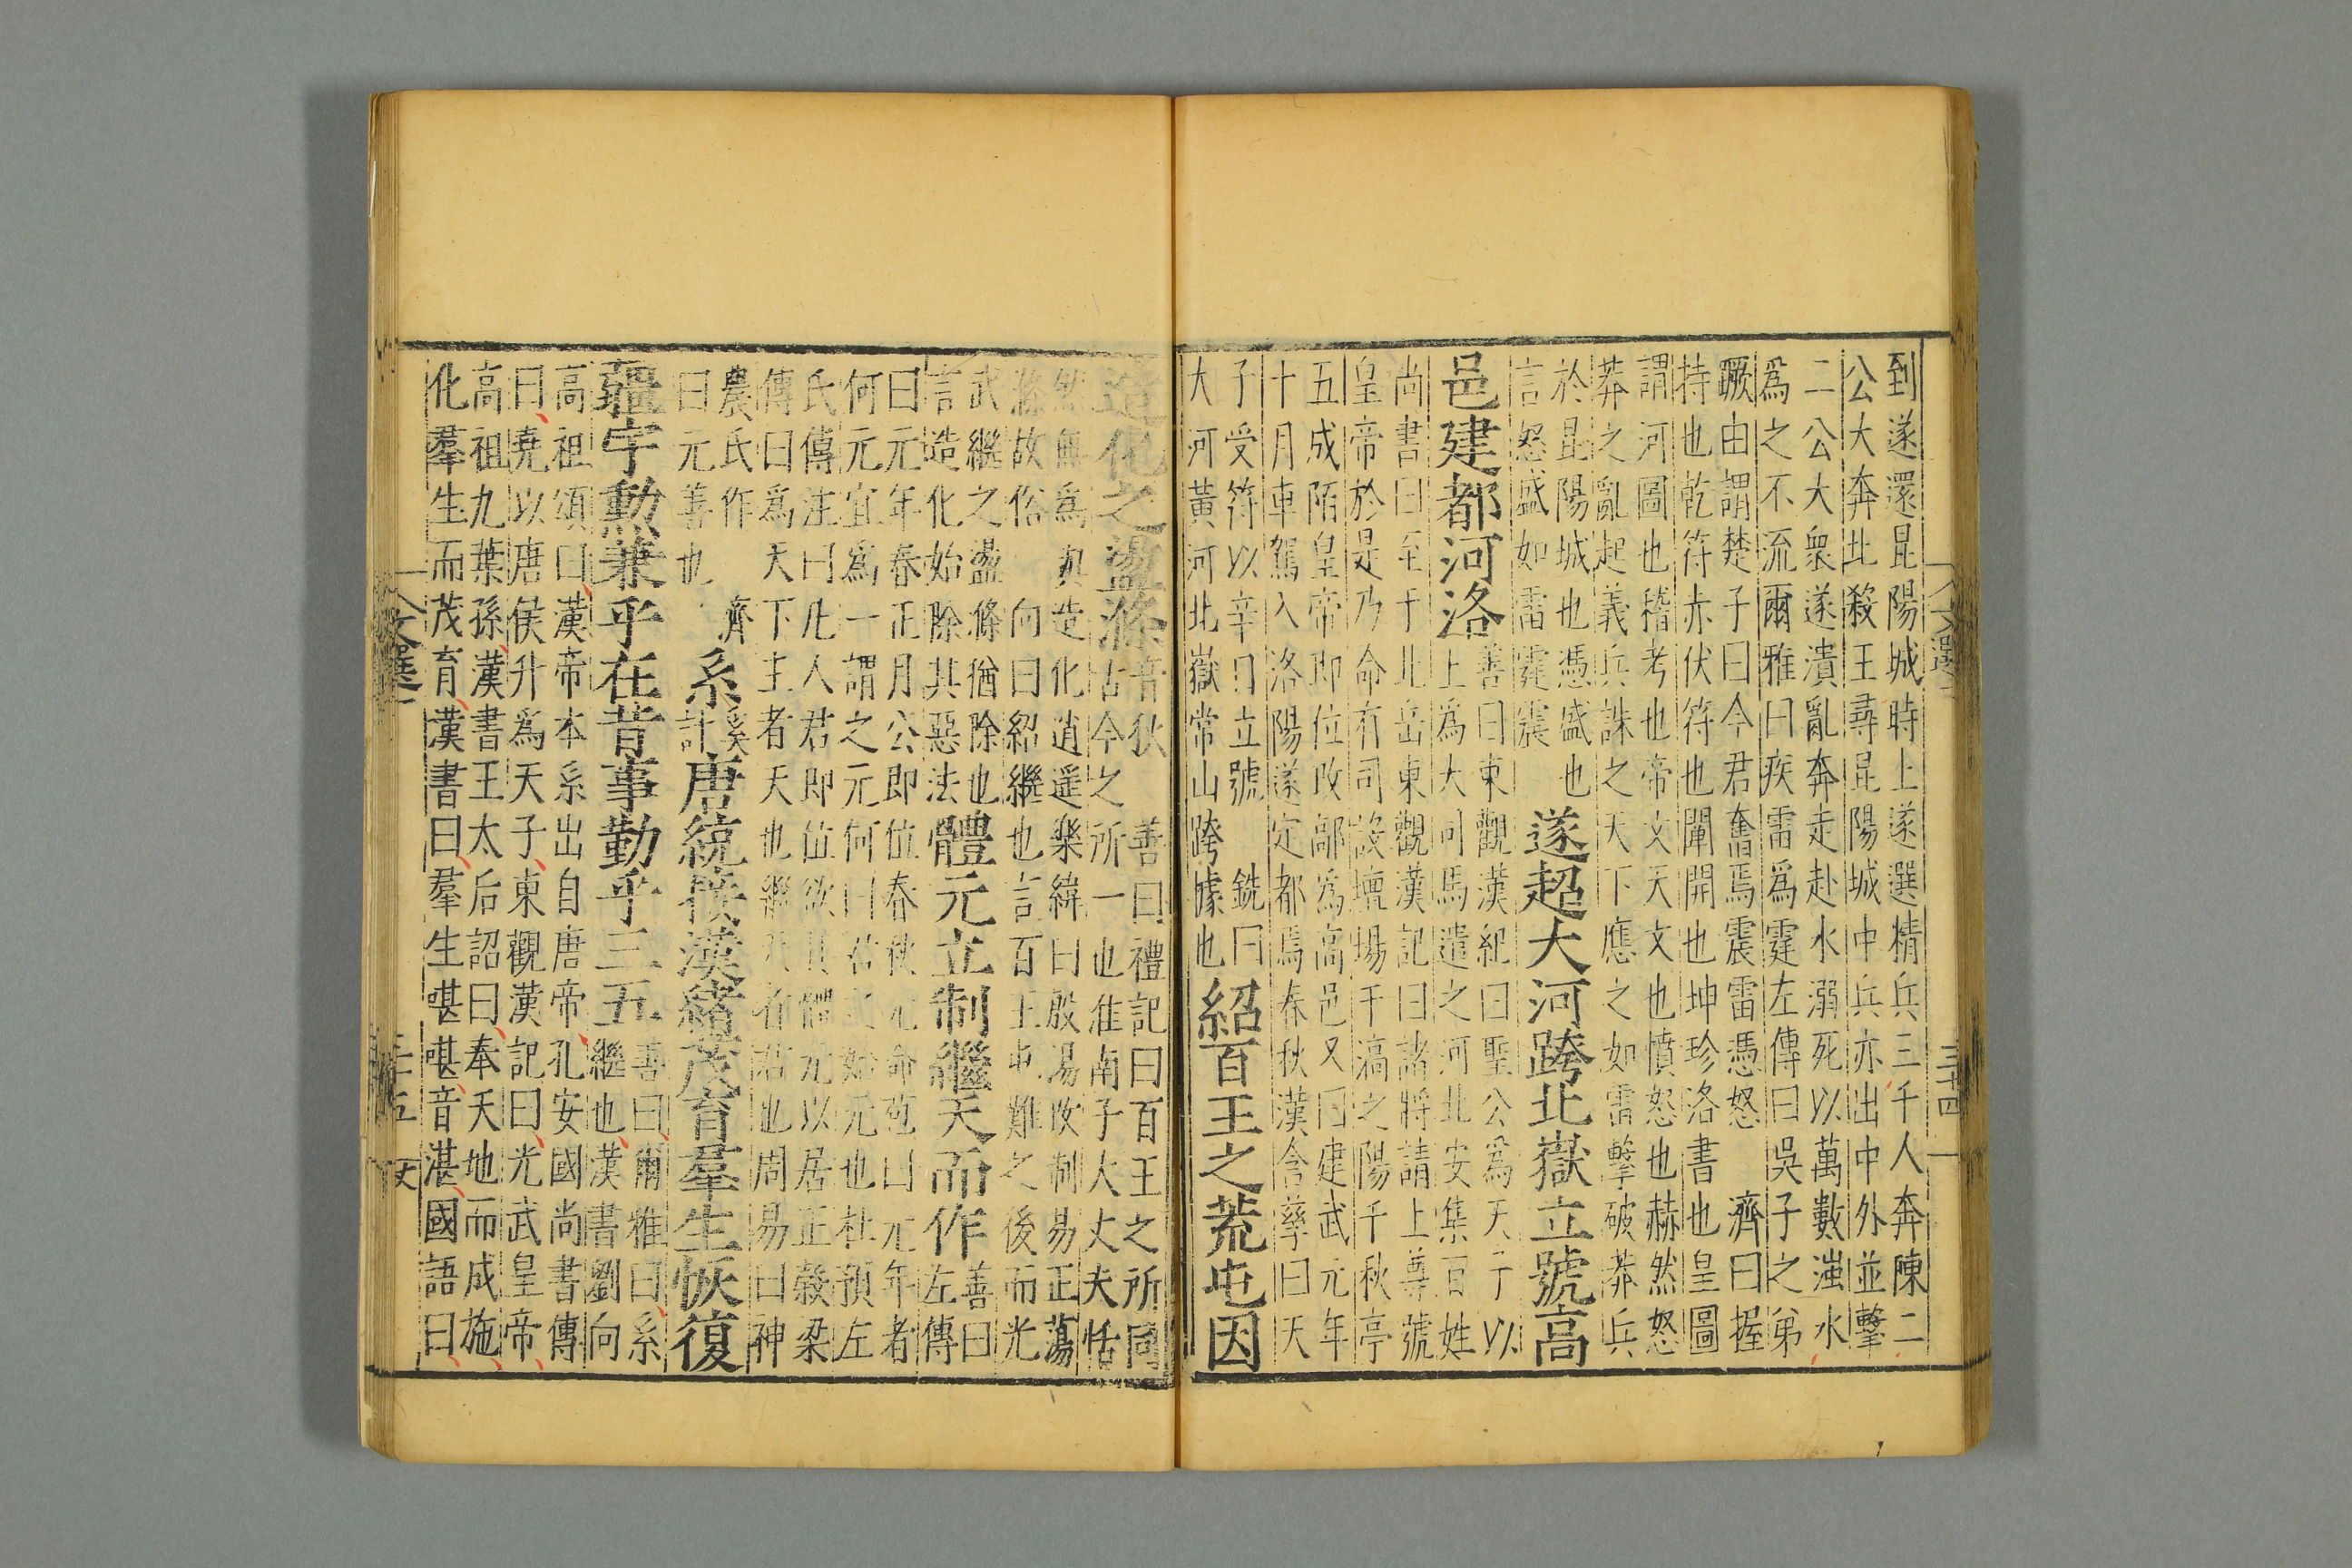 到遂還昆陽城時上遂選精兵三千人奔陳二
公大奔北殺王尋昆陽城中兵亦出中外並擊
二公大衆遂潰亂奔走赴水溺死以萬數滍水
爲之不流爾雅曰疾雷爲霆左傳曰吳子之弟
蹶由謂楚子曰今君奮焉震雷憑怒 濟曰握
持也乾符赤伏符也闡開也坤珍洛書也皇圖
謂河圖也稽考也帝文天文也憤怒也赫然怒
莽之亂起義兵誅之天下應之如雷擊破莽兵
於昆陽城也憑盛也
言怒盛如雷霆震
遂超大河跨北嶽立號高
邑建都河洛
善曰東觀漢紀曰聖公爲天子以
上爲大司馬遣之河北安集百姓
尚書曰至于北岳東觀漢記曰諸將請上尊號
皇帝於是乃命有司設壇場于滈之陽千秋亭
五成陌皇帝即位改鄗爲高邑又曰建武元年
十月車駕入洛陽遂定都焉春秋漢含孳曰天
子受符以辛日立號 銑曰
大河黃河北嶽常山跨據也
紹百王之荒屯因
造化之盪滌
音狄 善曰禮記曰百王之所同
古今之所一也淮南子大丈夫恬
然無爲與造化逍遥樂緯曰殷湯改制易正蕩
滌故俗 向曰紹繼也言百王屯難之後而光
武繼之盪滌猶除也
言造化始除其惡法
體元立制繼天而作
善曰
左傳
曰元年春正月公即位春秋元命苞曰元年者
何元宜爲一謂之元何曰君之始元也杜預左
氏傳注曰凡人君即位欲其體元以居正穀梁
傳曰爲天下主者天也繼天者君也周易曰神
農氏作 濟
曰元善也
系
奚
計
唐統接漢緒茂育羣生恢復
疆宇勳兼乎在昔事勤乎三五
善曰爾雅曰系
繼也漢書劉向
高祖頌曰漢帝本系出自唐帝孔安國尚書傳
曰堯以唐侯升爲天子東觀漢記曰光武皇帝
高祖九葉孫漢書王太后詔曰奉天地而成施
化羣生而茂育漢書曰羣生啿啿音湛國語曰
文選
三十四
文選
三十五
文